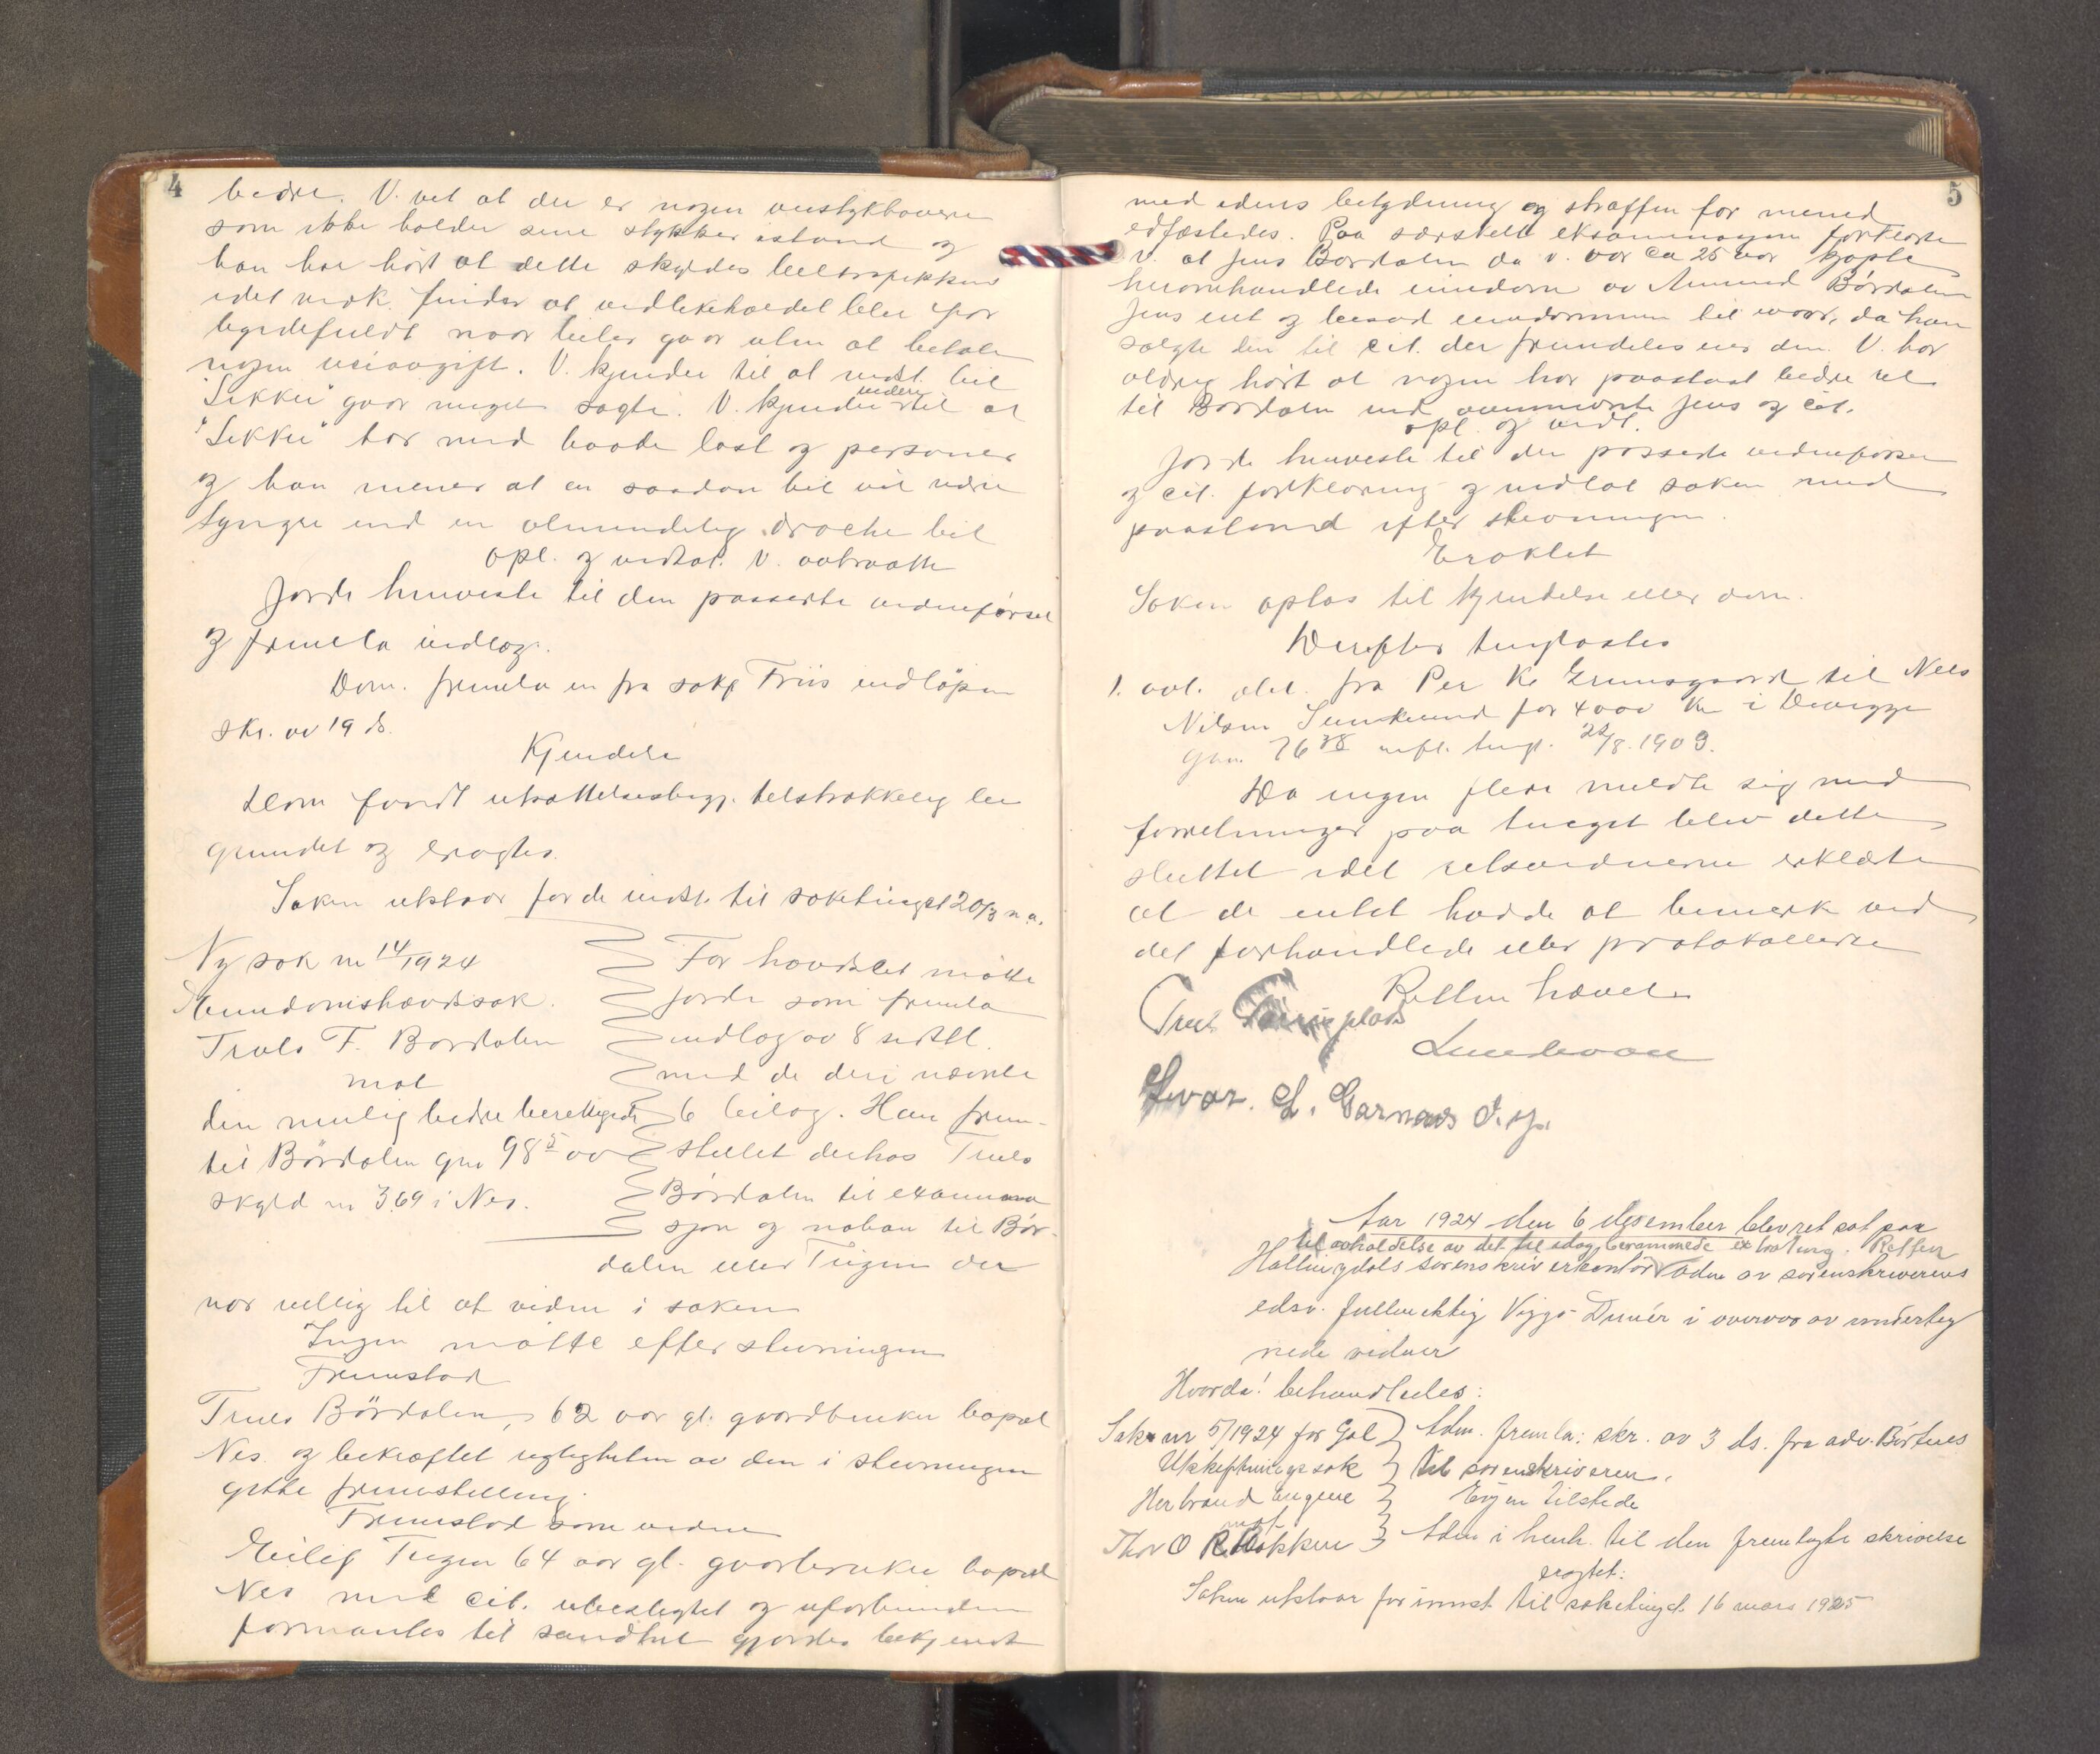 4
bedre. V. vet at der er nogen veistykkhavere
som ikke holder sine stykker istand og
han har hørt at dette skyldes biltrafikken
idet
byrdefuldt naar biler gaar uten at betale
nogen veiavgift. V. kjender til at indst. bil
"Sikker" gaar meget sagte. V. kjender videre til at
"Sikker" tar med baade last og personer
og han mener at en saadan bil vil være
tyngre end en almindelig droche bil
opl. og vedtat. V. aatraatte
Jorde henviste til den passerte vidneførsel
og fremla indlæg.
Dom. fremla en fra sakf Friis indløpen
skr. av 19 ds.
Kjendelse
Dom fandt utsættelsesbegj. tilstrækkelig be
grundet og eragtes.
Saken utstaar for de indst. til saketinget 20/3 n.a.
Ny sak nr 14/1924
Eiendomshævdssak.
Truls F. Børdalen
mot
den mulig bedre berettigede
til Børdalen gnr 98 5 av
skyld m 3.69 i Nes.
For hovedcit møtte
Jorde som fremla
indlæg av 8 septbr.
med de deri nævnte
6 bilag. Han frem-
stillet derhos Truls
Børdalen til examina
sjon og naboen til Bør-
dalen Eilev Tiigen der
var villig til at vidne i saken
Ingen møtte efter stevningen
Fremstod
Truls Børdalen, 62 aar gl: gaardbruker bopæl
Nes. og bekræftet rigtigheten av den i stevningen
gitte fremstilling.
Fremstod som vidne
Eilif Tiigen 64 aar gl. gaarbruker bopæl
Nes med cit. ubeslegtet og uforbunden
formantes til sandhet gjordes bekjendt
5
med edens betydning og straffen for mened
edfæstedes. Paa særskilt eksaminasjon forklarte
V. at Jens Børdalen da v. var ca 25 aar kjøpte
heromhandlede eiendom av Amund Børdalen
Jens eiet og besad eiendommen til iaar, da han
solgte den til cit. der fremdeles eier den. V. har
aldrig hørt at nogen har paastaat bedre ret
til Børdalen end ovennævnte Jens og cit.
opl. og vedt.
Jorde henviste til den passerte vidneførsel
og cit. forklaring og indlot saken med
paastand efter stevningen.
Eraktet
Saken optas til kjendelse eller dom.
Derefter tinglæstes
1. avl. skl. fra Per K. Grimsgaard til Nils
Nilsen for 4000 Kr i
gnr. 76 38 tingl. 22/8. 1909.
Da ingen flere meldte sig med
forretninger paa tinget blev dette
sluttet idet retsvidnerne erklærte
at de intet hadde at bemerke ved
det forhandlede eller protokollerte
Retten hævet
Ivar. L. Garnaas
Aar 1924 den 6 desember blev ret sat paa
til avholdelse av det til idag berammede extrating. Retten
Hallingdals sorenskriverkontor adm av sorenskriverens
edsv. fullmektig Viggo Dunér i overvær av underteg
nede vidner
Hvorda! behandledes:
Sak nr 5/1924 for Gol
Utskiftningssak
Herbrand Engene
mot
Thor O Rotokken
Adm. fremla: skr. av 3 ds. fra adv. Børtnes
til sorenskriveren.
Ingen tilstede
Adm i henh. til den fremlagte skrivelse
eragtet:
Saken utstaar for innst. til saketinget 16 mars 1925